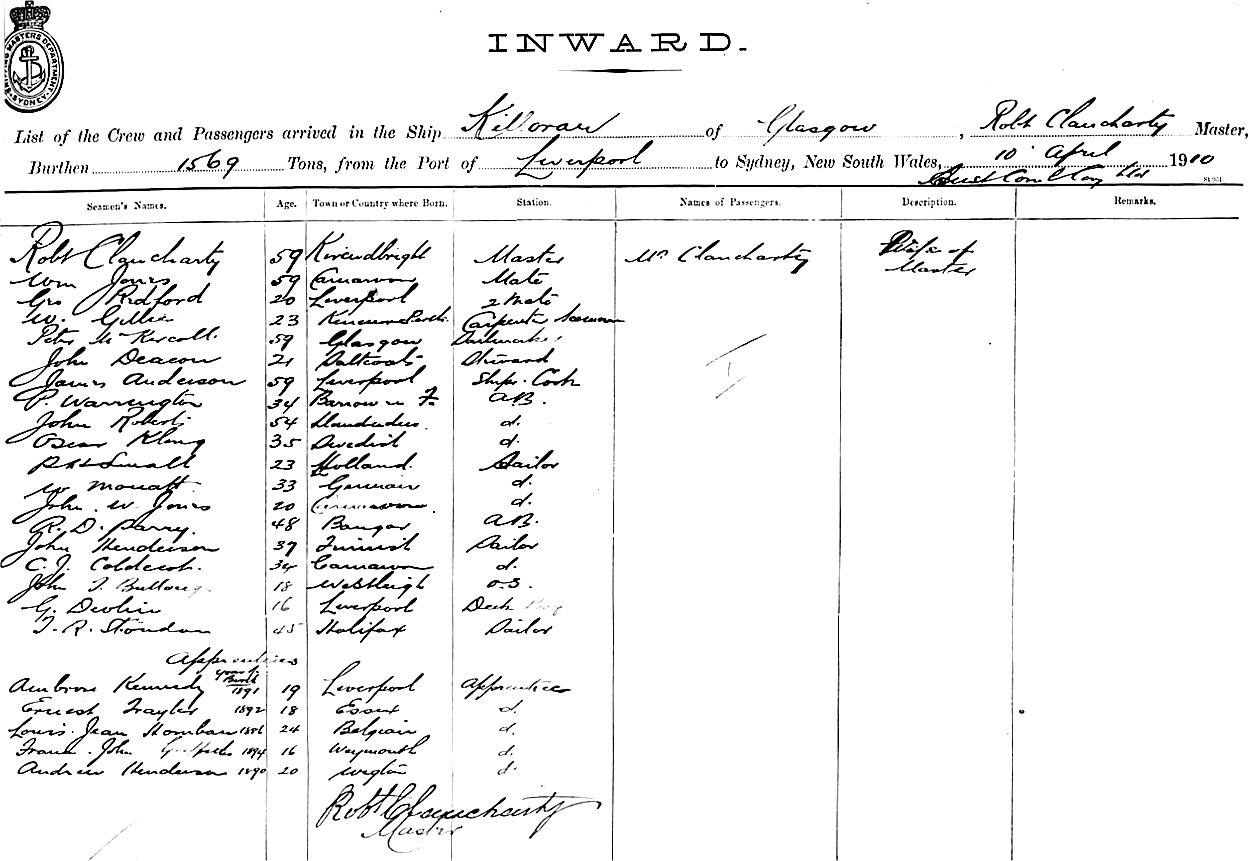 SHIPPING MASTERS DEPARTMENT SYDNEY
INWARD.
List of the Crew and Passengers arrived in the Ship Killoran of Glasgow, Robt Claucharty Master,
Burthen 1569 Tons, from the Port of Liverpool to Sydney, New South Wales, 10 April 1910
Ltd
Seamen's Names. Age. Town or Country where Born. Station. Names of Passengers. Description. Remarks.
Robt Claucharty 59 Master Mrs Claucharty Wife of
Master
Wm Jones 59 Carnarvon Mate
Geo Redford 20 Liverpool 2 Mate
W. Gillies 23 Carpenter Seaman
Peter 59 Glasgow Sailmaker
John Deacon 21 Saltcoats Steward
James Anderson 59 Liverpool Ships Cook
P. Warrington 34 Barrow in F. A.B.
John Roberts 54 d.
Oscar Klang 35 Swedish d.
Small 23 Holland Sailor
W Mouatt 33 German d.
John W Jones 20 Carnarvon d.
R. D. Parry. 48 Bangor A.B.
John Henderson 37 Sailor
C. J. 34 Carnarvon d.
John T. 18 Westleigh O.S.
G. Devlin 16 Liverpool Deck Boy
T. R. Stondon 45 Halifax Sailor
Apprentices
year of
Birth
Ambrose Kennedy 1891 19 Liverpool Apprentice
Ernest Trayler 1892 18 Essex d.
Louis Jean 1886 24 Belgian d.
John 1894 16 Weymouth d.
Andrew Henderson 1890 20 Wigton d.
Robt Claucharty
Master